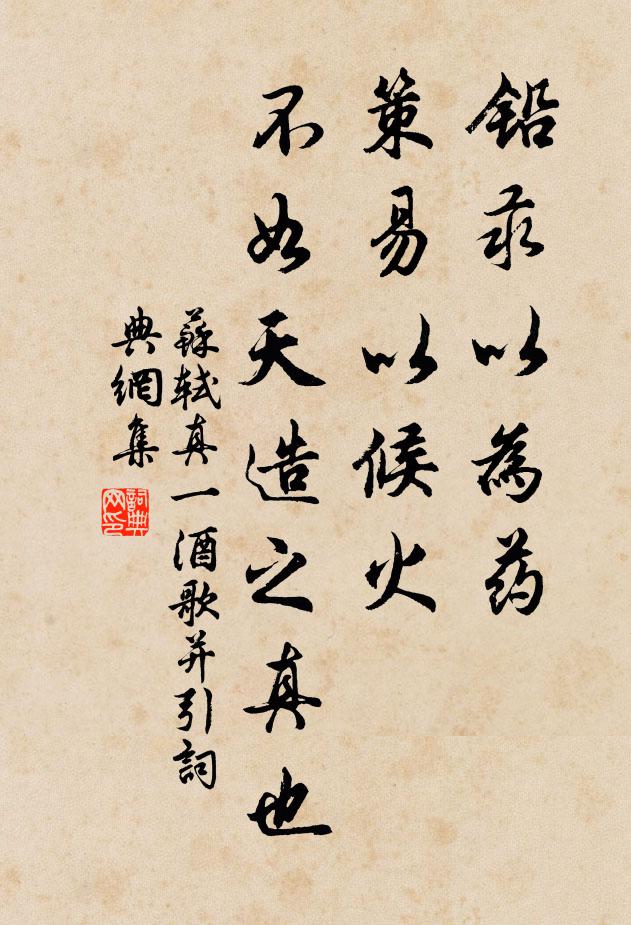 铅汞以為药
策易以候火
不如天造之真也
蘇軾真一酒歌并引詞
典網集
詞典网印